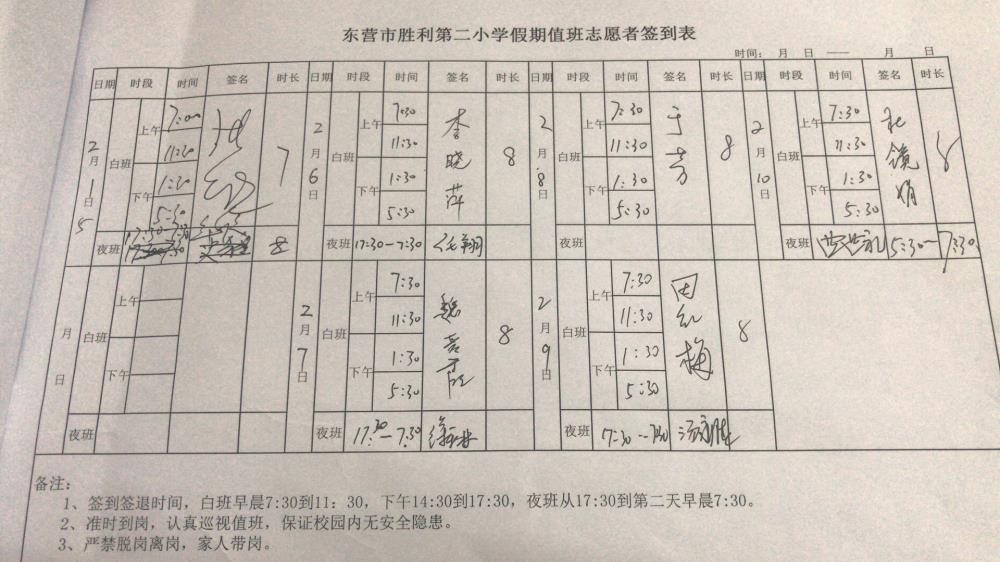 东营市胜利第二小学假期值班志愿者签到表
时间： 月 日 —— 月 日
日期 时段 时间 签名 时长 日期 时段 时间 签名 时长 日期 时段 时间 签名 时长 日期 时段 时间 签名 时长
2月5日 白班 上午 7:00 11:30 下午 1:30 5:30 7
夜班 8
2月6日 白班 上午 7:30 11:30 下午 1:30 5:30 李晓萍 8
夜班 17:30-7:30
2月8日 白班 上午 7:30 11:30 下午 1:30 5:30 于芳 8
夜班
2月10日 白班 上午 7:30 11:30 下午 1:30 5:30 杜镜娟 8
夜班 5:30-7:30
月 日 白班 上午 下午
夜班
2月7日 白班 上午 7:30 11:30 下午 1:30 5:30 魏 霞 8
夜班 17:30-7:30
2月9日 白班 上午 7:30 11:30 下午 1:30 5:30 田红梅 8
夜班 17:30-7:30
备注：
1、签到签退时间，白班早晨7:30到11：30，下午14:30到17:30，夜班从17:30到第二天早晨7:30。
2、准时到岗，认真巡视值班，保证校园内无安全隐患。
3、严禁脱岗离岗，家人带岗。